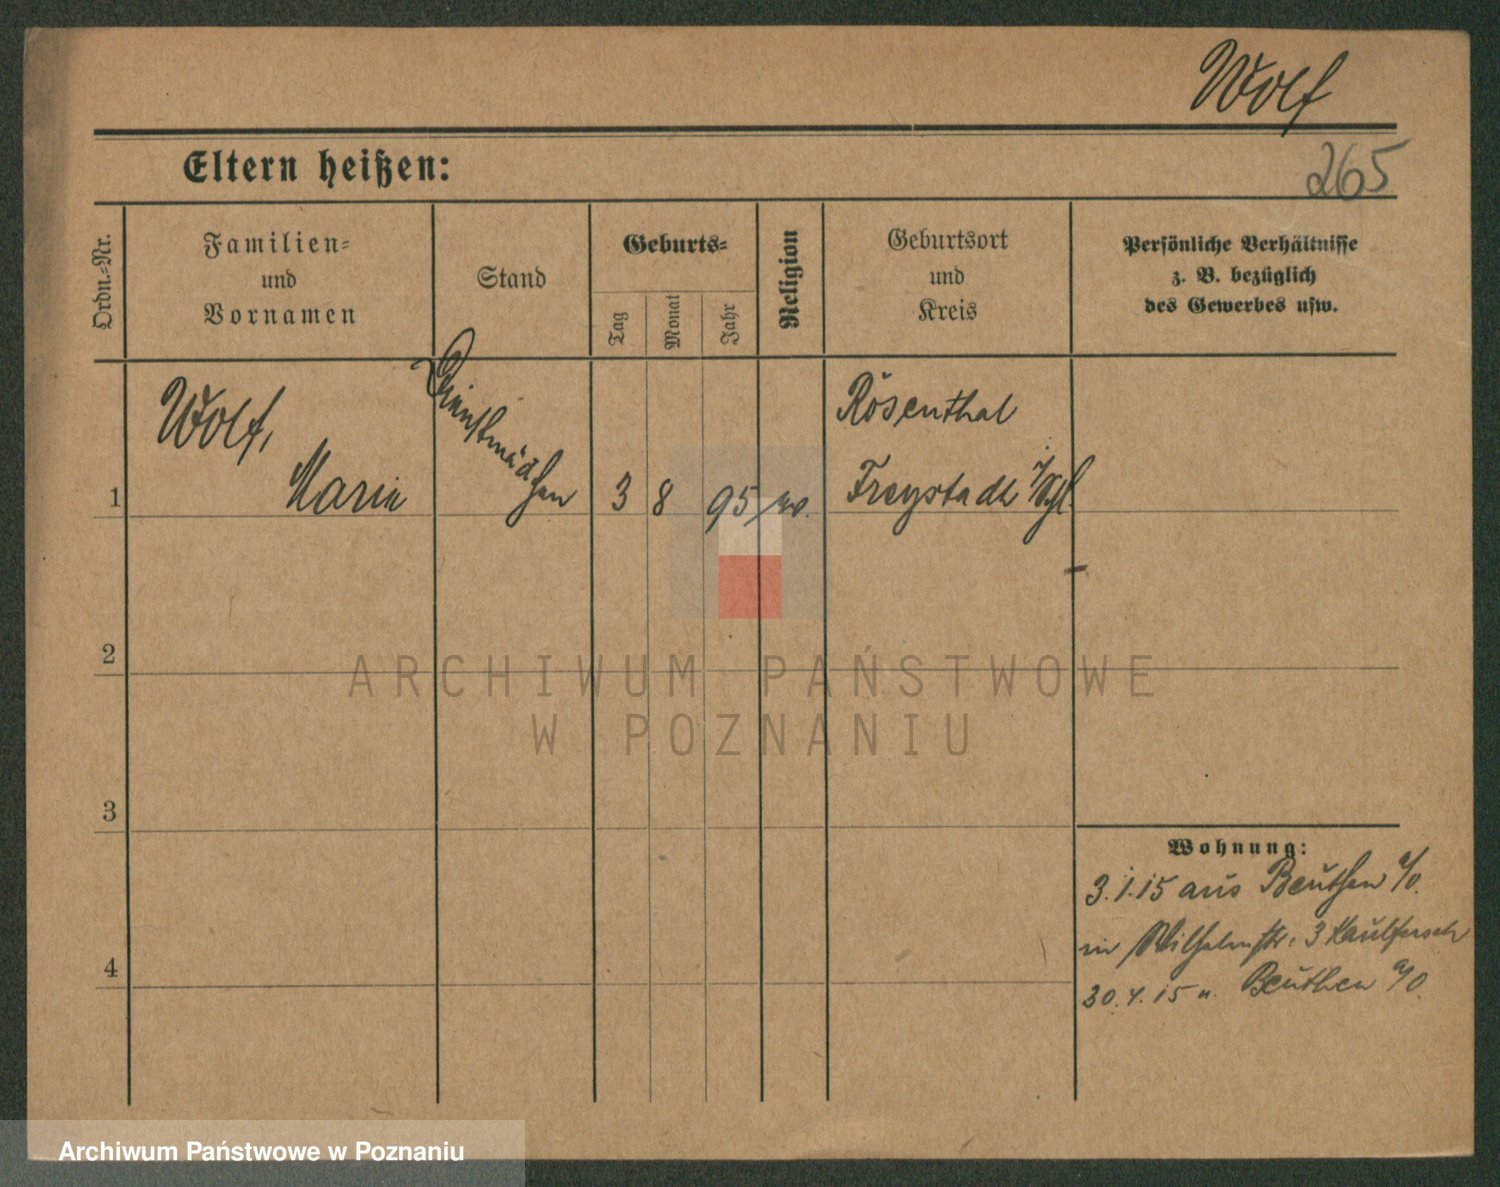 Wolf
265
Eltern heißen:
Ordn.-Nr.
Familien-
und
Vornamen
Stand
Geburts-
Tag
Monat
Jahr
Religion
Geburtsort
und
Kreis
Persönliche Verhältnisse
z. B. bezüglich
des Gewerbes usw.
1
Wolf,
Marie
Dienstmädchen
3 8 95
Rosenthal
Freystadt
2
ARCHIWUM PAŃSTWOWE
W POZNANIU
3
Wohnung:
3.1.15 aus Beuthen a/O.
in Wilhelmstr. 3
4
30.4.15 n. Beuthen a/O.
Archiwum Państwowe w Poznaniu